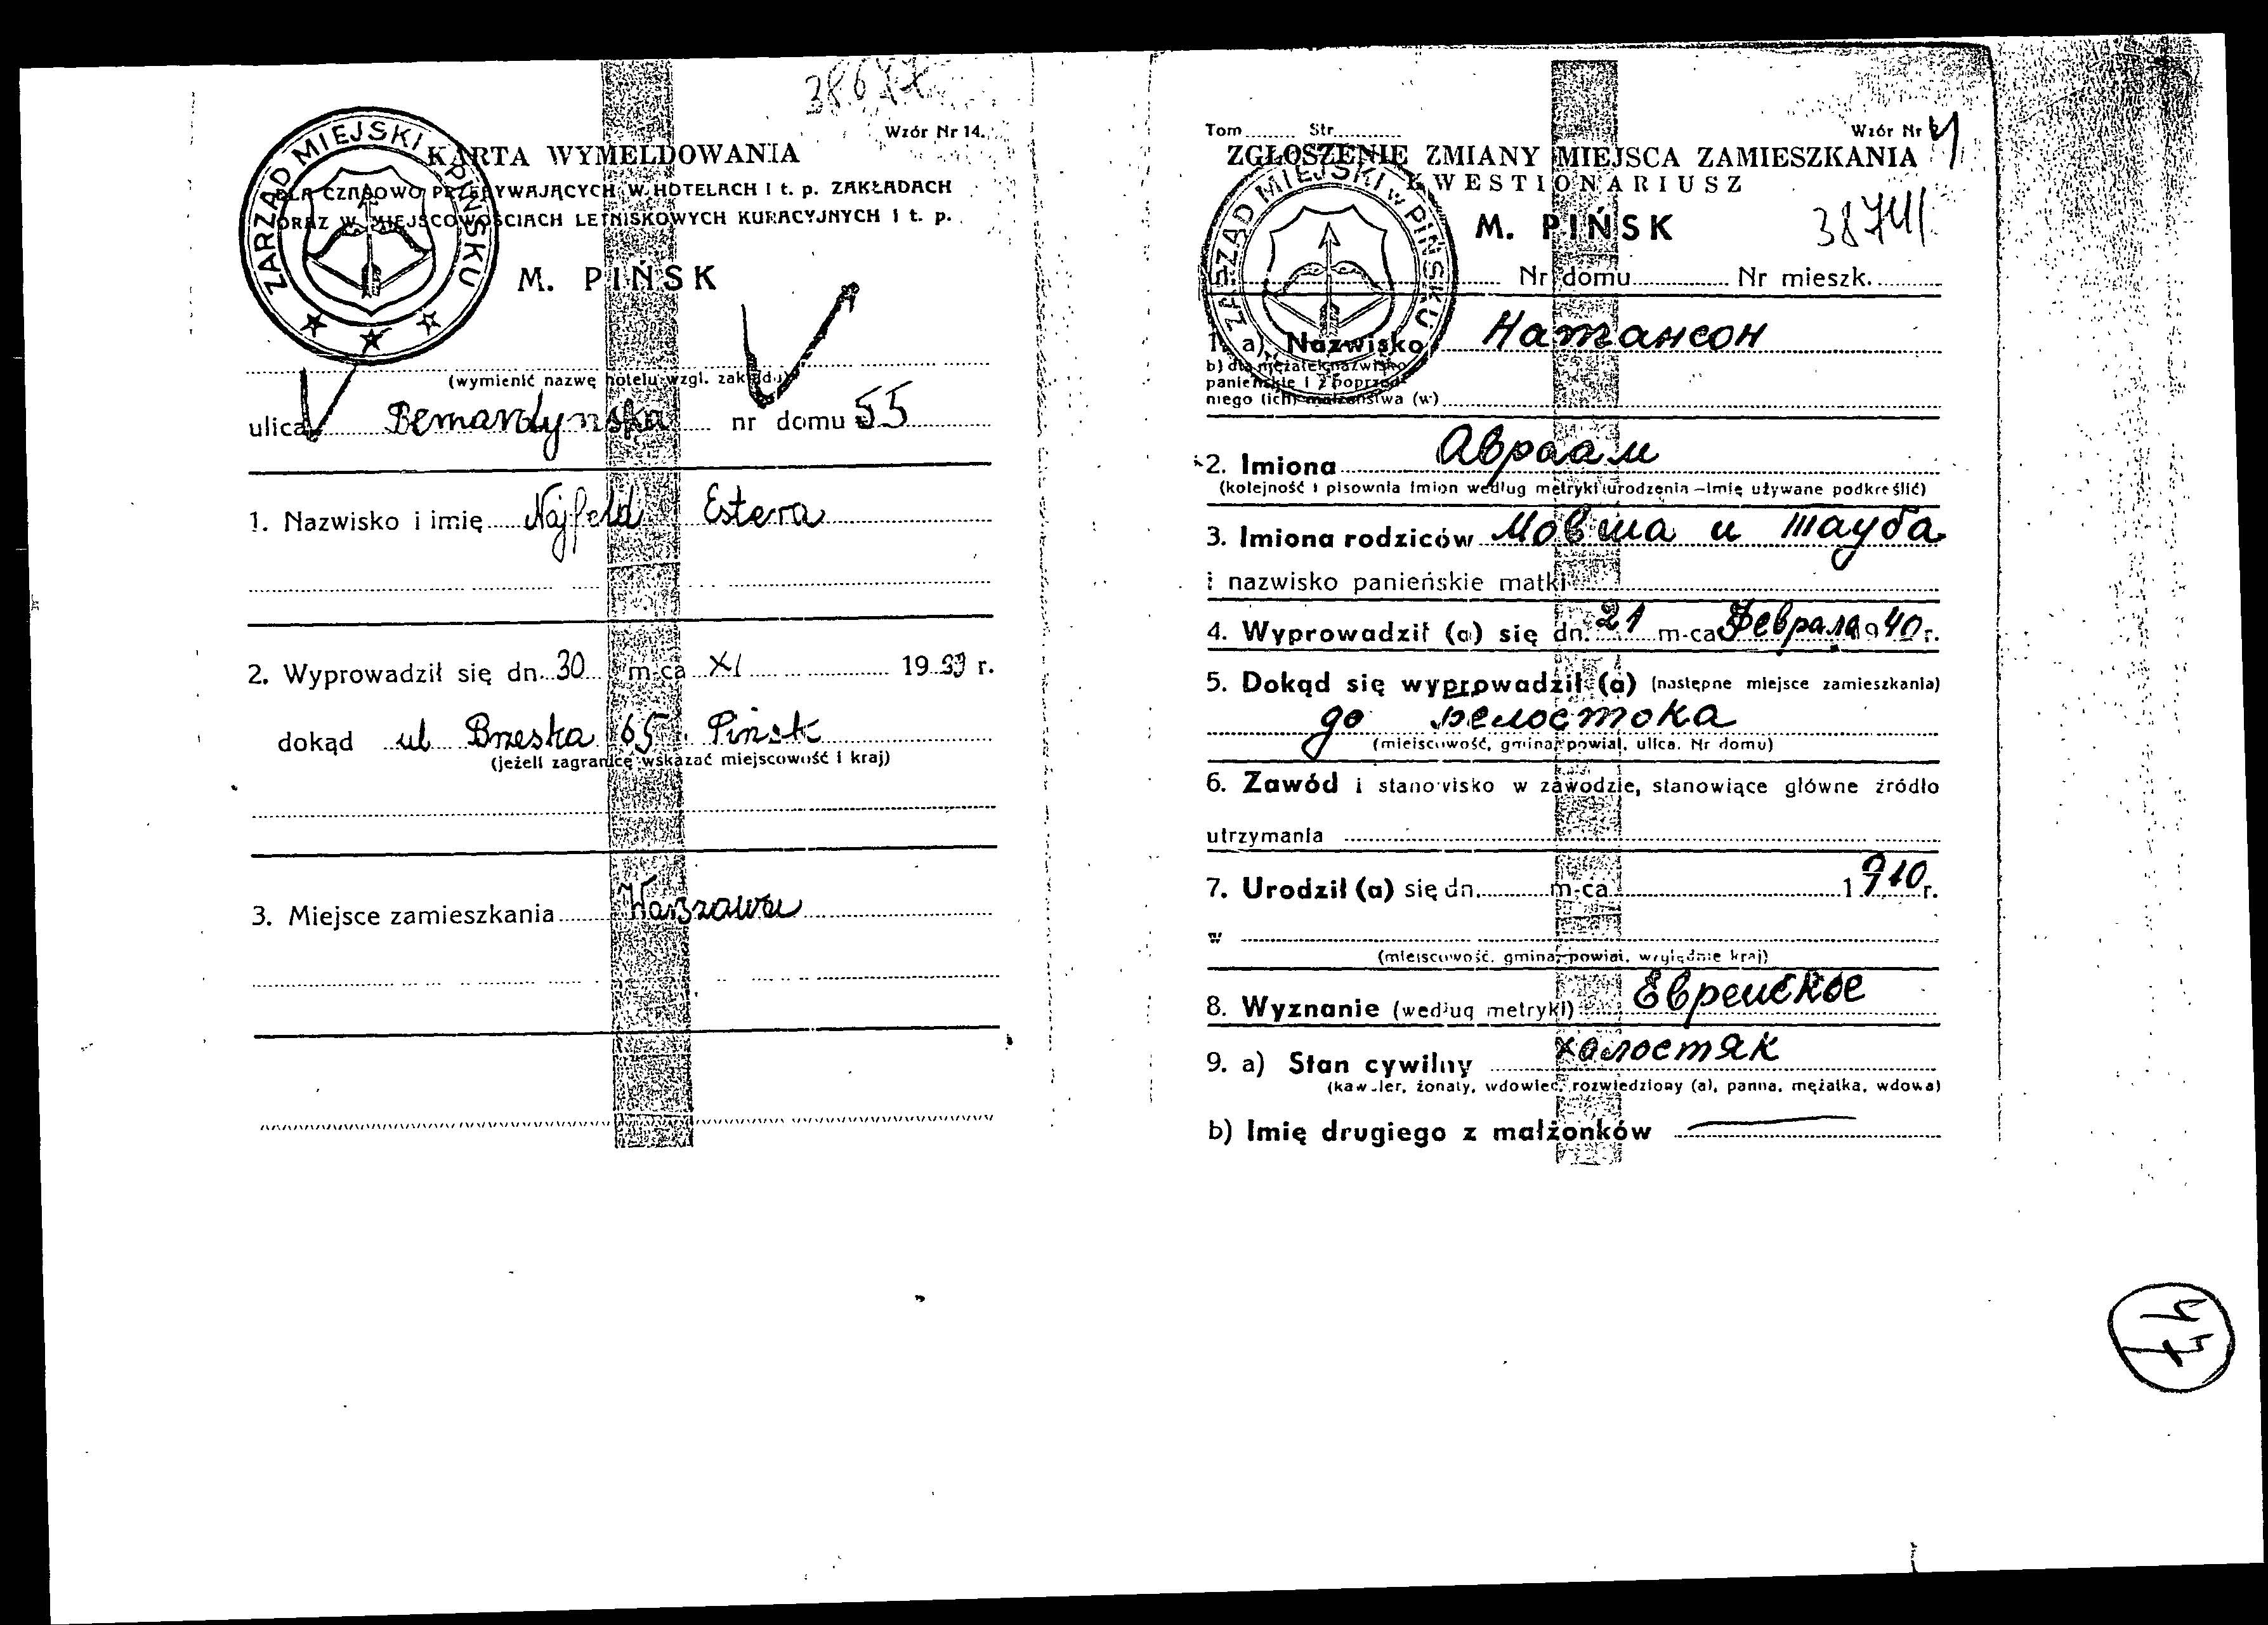 Wzór Nr 14.
ZARZĄD MIEJSKI w PIŃSKU
KARTA WYMELDOWANIA
DLA CZASOWO PRZEBYWAJĄCYCH W HOTELACH I t. p. ZAKŁADACH
ORAZ W MIEJSCOWOŚCIACH LETNISKOWYCH KURACYJNYCH I t. p.
M. PIŃSK
(wymienić nazwę hotelu wzgl. zakładu)
ulica Bernardynska nr domu 55
1. Nazwisko i imię Najfeld Estera
2. Wyprowadził się dn. 30 m-ca XI 1939 r.
dokąd ul Brzeska 65 Pińsk
(jeżeli zagranicę wskazać miejscowość i kraj)
3. Miejsce zamieszkania Warszawa
Tom Str. Wzór Nr
ZGŁOSZENIE ZMIANY MIEJSCA ZAMIESZKANIA
KWESTIONARIUSZ
ZARZĄD MIEJSKI w PIŃSKU
M. PIŃSK
Nr domu Nr mieszk.
1. a) Nazwisko Натансон
b) dla mężatek nazwisko
panieńskie i z poprzed-
niego (ich) małżeństwa (w)
2. Imiona Авраам
(kolejność i pisownia imion według metryki urodzenia – imię używane podkreślić)
3. Imiona rodziców Мовша и Тауба
i nazwisko panieńskie matki
4. Wyprowadził (a) się dn. 21 m-ca Февраля 1940 r.
5. Dokąd się wyprowadził (a) (następne miejsce zamieszkania)
до Белостока
(miejscowość, gmina, powiat, ulica, Nr domu)
6. Zawód i stanowisko w zawodzie, stanowiące główne źródło
utrzymania
7. Urodził (a) się dn. m-ca 1910 r.
w
(miejscowość, gmina, powiat, względnie kraj)
8. Wyznanie (według metryki) Еврейское
9. a) Stan cywilny халостяк
(kawaler, żonaty, wdowiec, rozwiedziony (a), panna, mężatka, wdowa)
b) Imię drugiego z małżonków